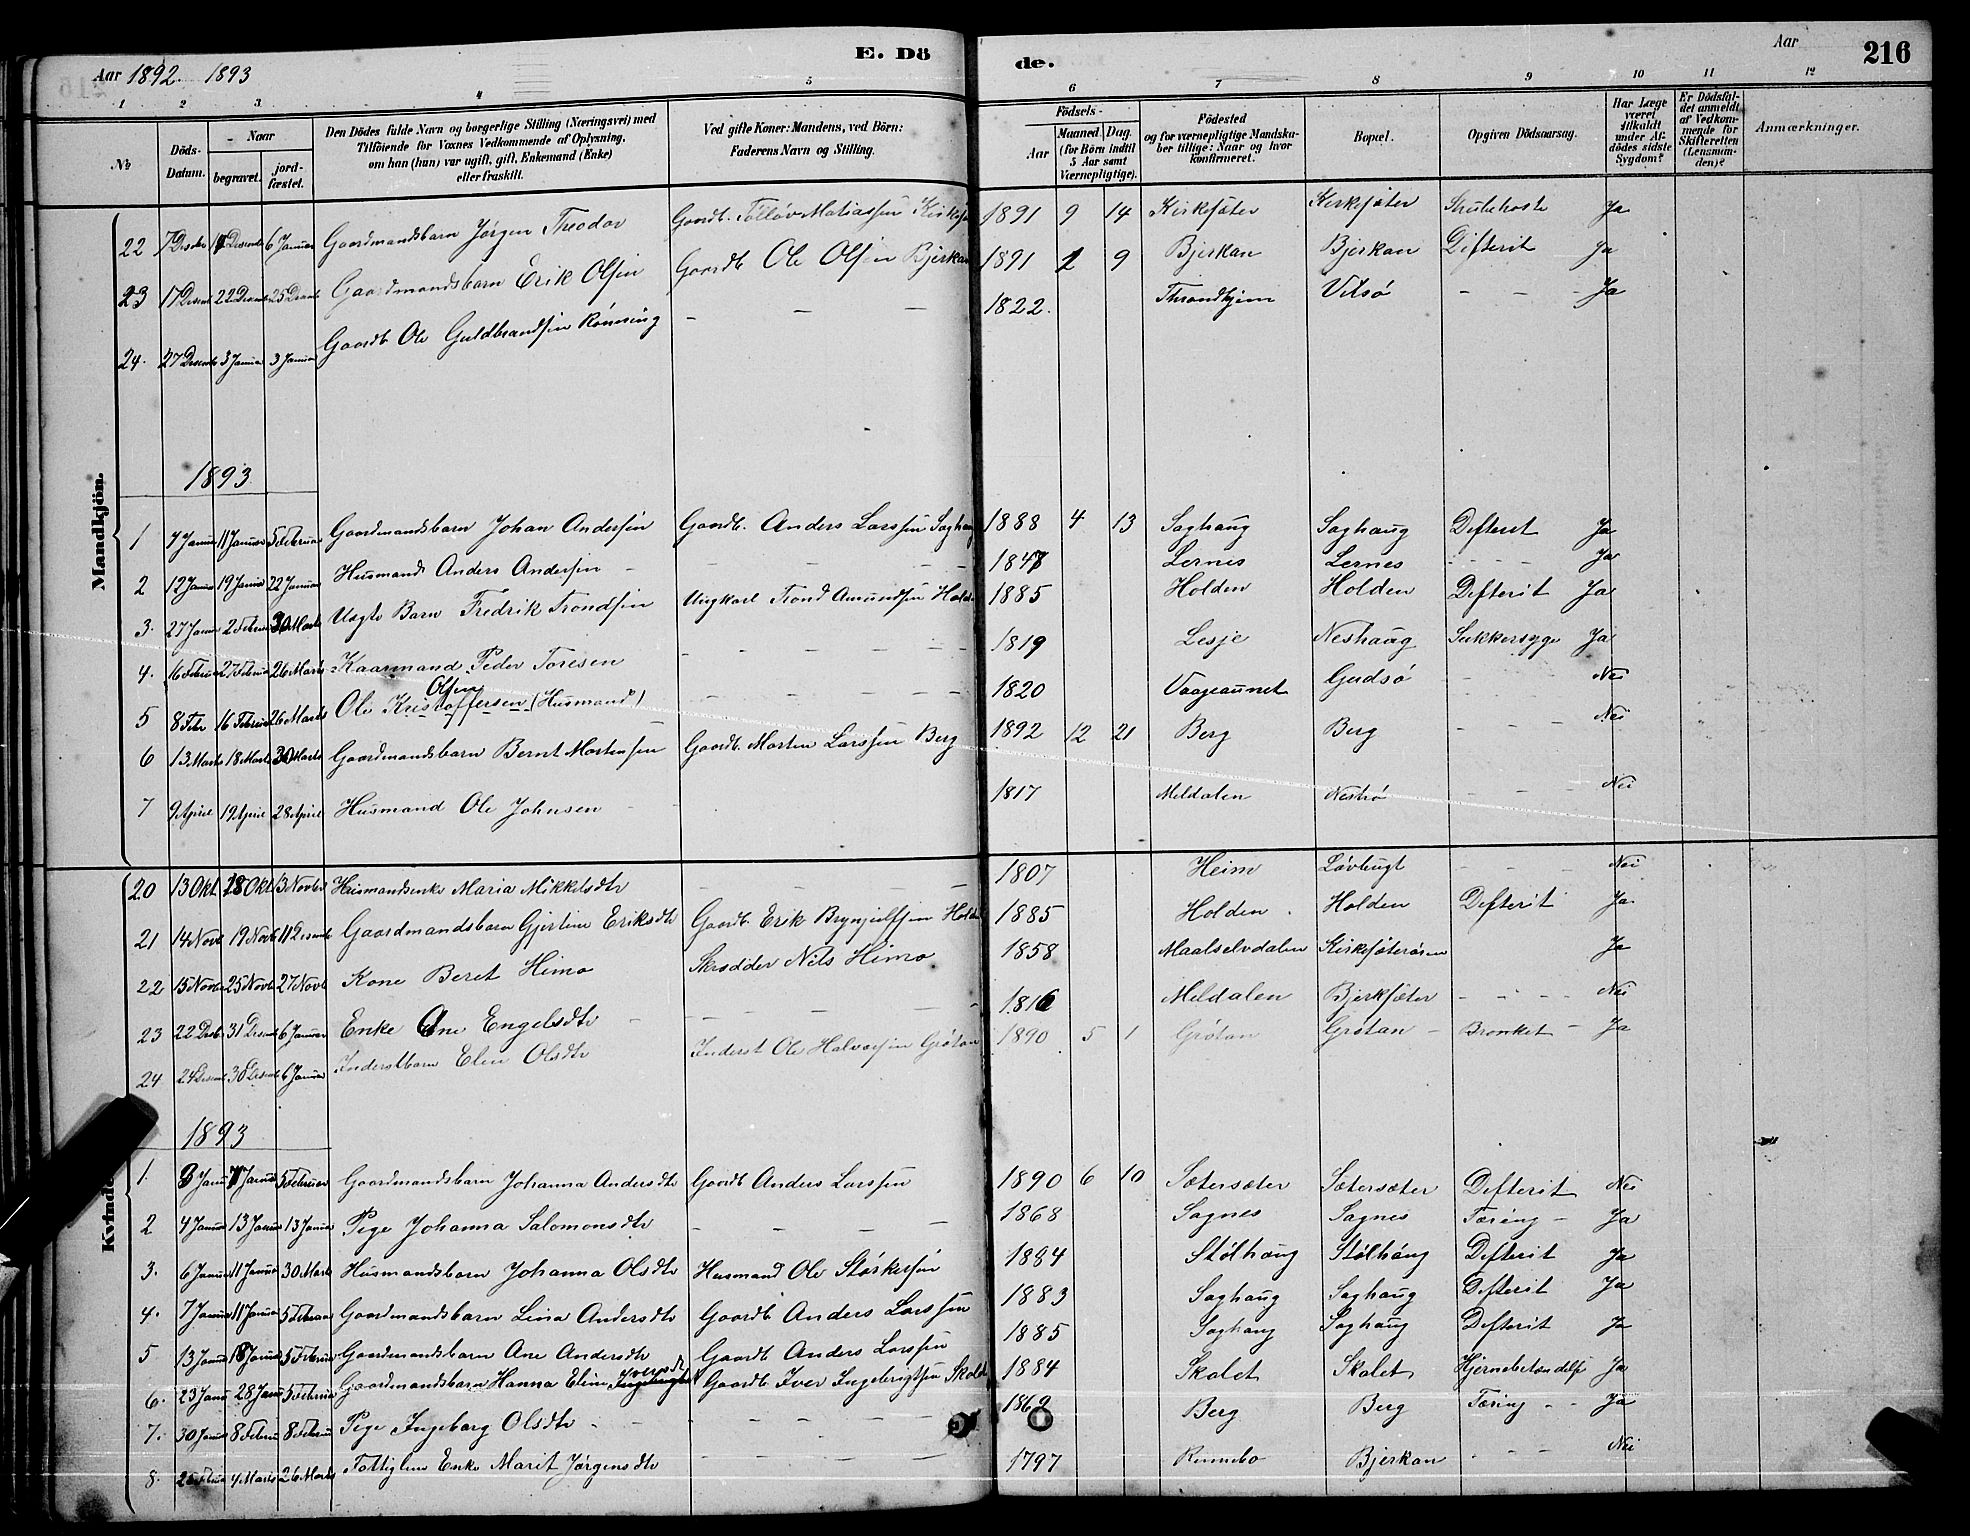 Aar 1892. 1893 E. Dö de. Aar 216
1 2 3 4 5 6 7 8 9 10 11 12
№ Döds-Datum. Naar begravet. jordfæstet. Den Dödes fulde Navn og borgerlige Stilling (Næringsvei) med Tilföiende for Voxnes Vedkommende af Oplysning, om han (hun) var ugift, gift, Enkemand (Enke) eller fraskilt. Ved gifte Koner: Mandens, ved Börn: Faderens Navn og Stilling. Födsels- Aar Maaned. Dag. (for Börn indtil 5 Aar samt Værnepligtige). Födested og for værnepligtige Mandskaber tillige: Naar og hvor konfirmeret. Bopæl. Opgiven Dödsaarsag. Har Læge været tilkaldt under Afdödes sidste Sygdom? Er Dödsfaldet anmeldt af Vedkommende for Skifteretten (Lensmanden)? Anmærkninger.
Mandkjön.
22 7 Desebr Desembr 6 Januar Gaardmandsbarn Jørgen Theodor Gaardb. Tolløv Matiassen 1891 9 14 Kirkesæter Kirkesæter Strubehoste Ja
23 17 Desemb 22 Desemb 25 Desemb Gaardmandsbarn Erik Olsen Gaardb Ole Olsen Bjerkan 1891 2 9 Bjerkan Bjerkan Difterit Ja
24. 27 Desemb 3 Januar 3 Januar Gaardb Ole Guldbrandsen Rønning – – – 1822. Throndhjem Vitsø – – – Ja
1893
1 7 Januar 11 Januar 5 Februar Gaardmandsbarn Johan Andersen Gaardb. Anders Larssen Saghaug 1888 4 13 Saghaug Saghaug Defterit Ja
2 12 Januar 19 Januar 22 Januar Husmand Anders Andersen – – – – – 1847 Lernes Lernes – – – Ja
3. 27 Januar 2 Februar 30 Marts Uægte Barn Fredrik Trondsen Ungkarl Trond Amundsen Holden 1885 Holden Holden Defterit Ja
4. 16 Februar 27 Februar 26 Marts Kaarmand Peder Toresen – – – – 1819 Lesje Neshaug Sukkersyge Ja
5 8 Febr 16 Februar 26 Marts Ole Kristoffersen Olsen (Husmand) – – – – 1820 Vaageaunet Gudsø – – – Nei
6 13 Marts 18 Marts 30 Marts Gaardmandsbarn Bernt Mortensen Gaardb. Morten Larssen Berg 1892 12 21 Berg Berg – – – Nei
7 9 April 19 April 28 April Husmand Ole Johnsen – – 1817 Meldalen Nestrø – – – Nei
Kvindekjön
20 13 Okt 28 Okt 3 Novbr Husmandsenke Maria Mikkelsdtr – – – 1807 Heim Løvbugt – – – Nei
21 14 Novb 19 Novb 11 Desemb Gaardmandsbarn Gjertine Eriksdtr Gaardb. Erik Brynjulfsen Holden 1885 Holden Holden Defterit Ja
22 15 Novbr 25 Novb 27 Novb Kone Beret Himo Skrædder Nils Himo 1858 Maalselvdalen Kirkesæterøren Ja
23 22 Desb 31 Desemb 6 Januar Enke Ane Engelsdtr – – – – – 1816 Meldalen Bjerksæter – – – – Nei
24 24 Desemb 30 Desemb 6 Januar Inderstbarn Elen Olsdtr Inderst Ole Halvorsen Grøtan 1890 5 1 Grøtan Grøtan – Bronket – Ja
1893
1. 3 Janu 7 Januar 5 Februar Gaardmandsbarn Johanna Andersdtr Gaardb Anders Larssen 1890 6 10 Sætersæter Sætersæter Defterit Nei
2 4 Januar 13 Januar 13 Januar Pige Johanna Salomonsdtr – – – – 1868 Sagnes Sagnes Tæring – Ja
3. 6 Januar 11 Januar 30 Marts Husmandsbarn Johanna Olsdtr Husmand Ole Størkersen 1884 Stølhaug Stølhaug Defterit Ja
4. 7 Januar 11 Januar 5 Februar Gaardmandsbarn Lina Andersdtr Gaardb Anders Larssen 1883 Saghaug Saghaug Defterit Ja
5 13 Januar 18 Januar 5 Februar Gaardmandsbarn Ane Andersdtr Gaardb Anders Larssen 1885 Saghaug Saghaug Defterit Ja
6. 23 Janu 28 Janu 5 Februar Gaardmandsbarn Hanna Eline Iversdtr Gaardb Iver Ingebrigtsen 1884 Skalet Skalet Hjernebetændelse Ja
7. 30 Janu 8 Februar 8 Februar Pige Ingeborg Olsdtr – – – – – 1869 Berg Berg Tæring – – Ja
8. 4 Marts 26 Marts Fattiglem Enke Marit Jørgensdtr – – – – 1797 Rennebo Bjerkan – – – Nei